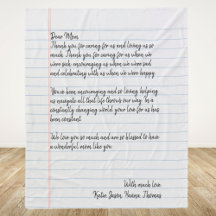 Dear Mom,
Thank you for caring for us and loving us so
much. Thank you for caring for us when we
were sick, encouraging us when we were sad
and celebrating with us when we were happy.
You've been encouraging and so loving, helping
us navigate all that life throws our way. In a
constantly changing world your love for us has
been constant.
We love you so much and are so blessed to have
a wonderful mom like you.
With much love
Katie, Jason, Thomas